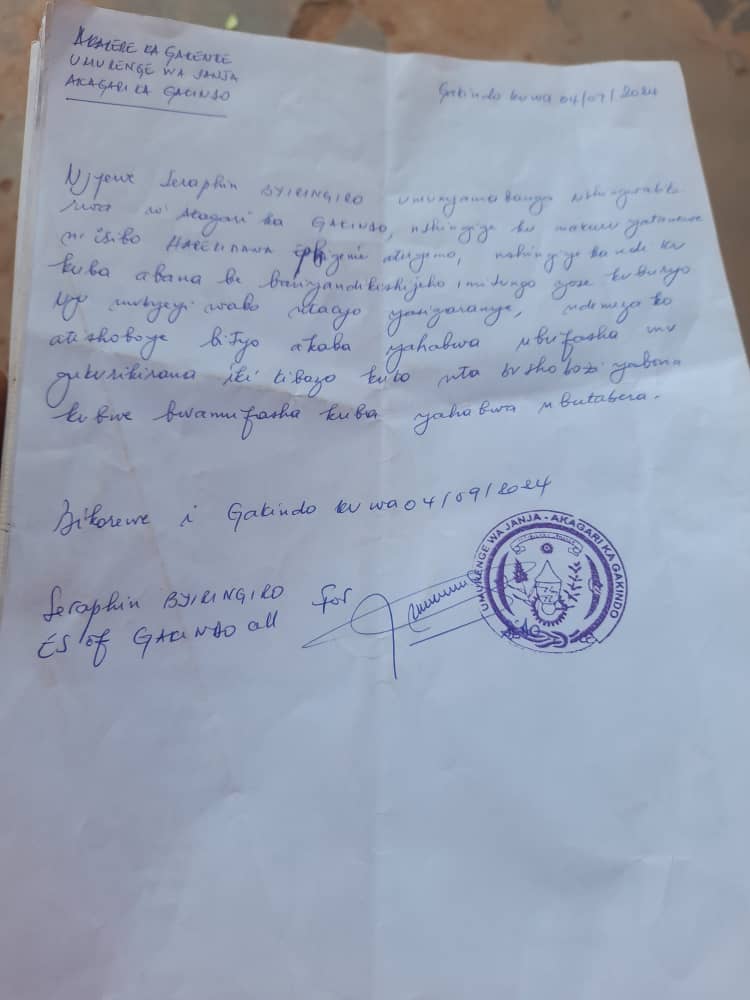 AKARERE KA GAKENKE
UMURENGE WA JANJA
AKAGARI KA GAKINDO
Gakindo kuwa 04/09/2024
Njyewe Seraphin BYIRINGIRO umunyamabanga Nshingwabiko
rwa w' Akagari ka GAKINDO, nshingiye ku makuru yatanzwe
n' isibo HAKURIMANA Iphigenie atuyemo, nshingiye kandi ku
kuba abana be bariyandikishijeho imitungo yose kuburyo
uyu mubyeyi wabo ntacyo yasigaranye, ndemeza ko
atishoboye bityo akaba yahabwa ubufasha mu
gukurikirana iki kibazo kuko nta bushobozi yabona
kubwe bwamufasha kuba yahabwa ubutabera.
Bikorewe i Gakindo kuwa 04/09/2024
Seraphin BYIRINGIRO for
ES of GAKINDO cell
UMURENGE WA JANJA - AKAGARI KA GAKINDO